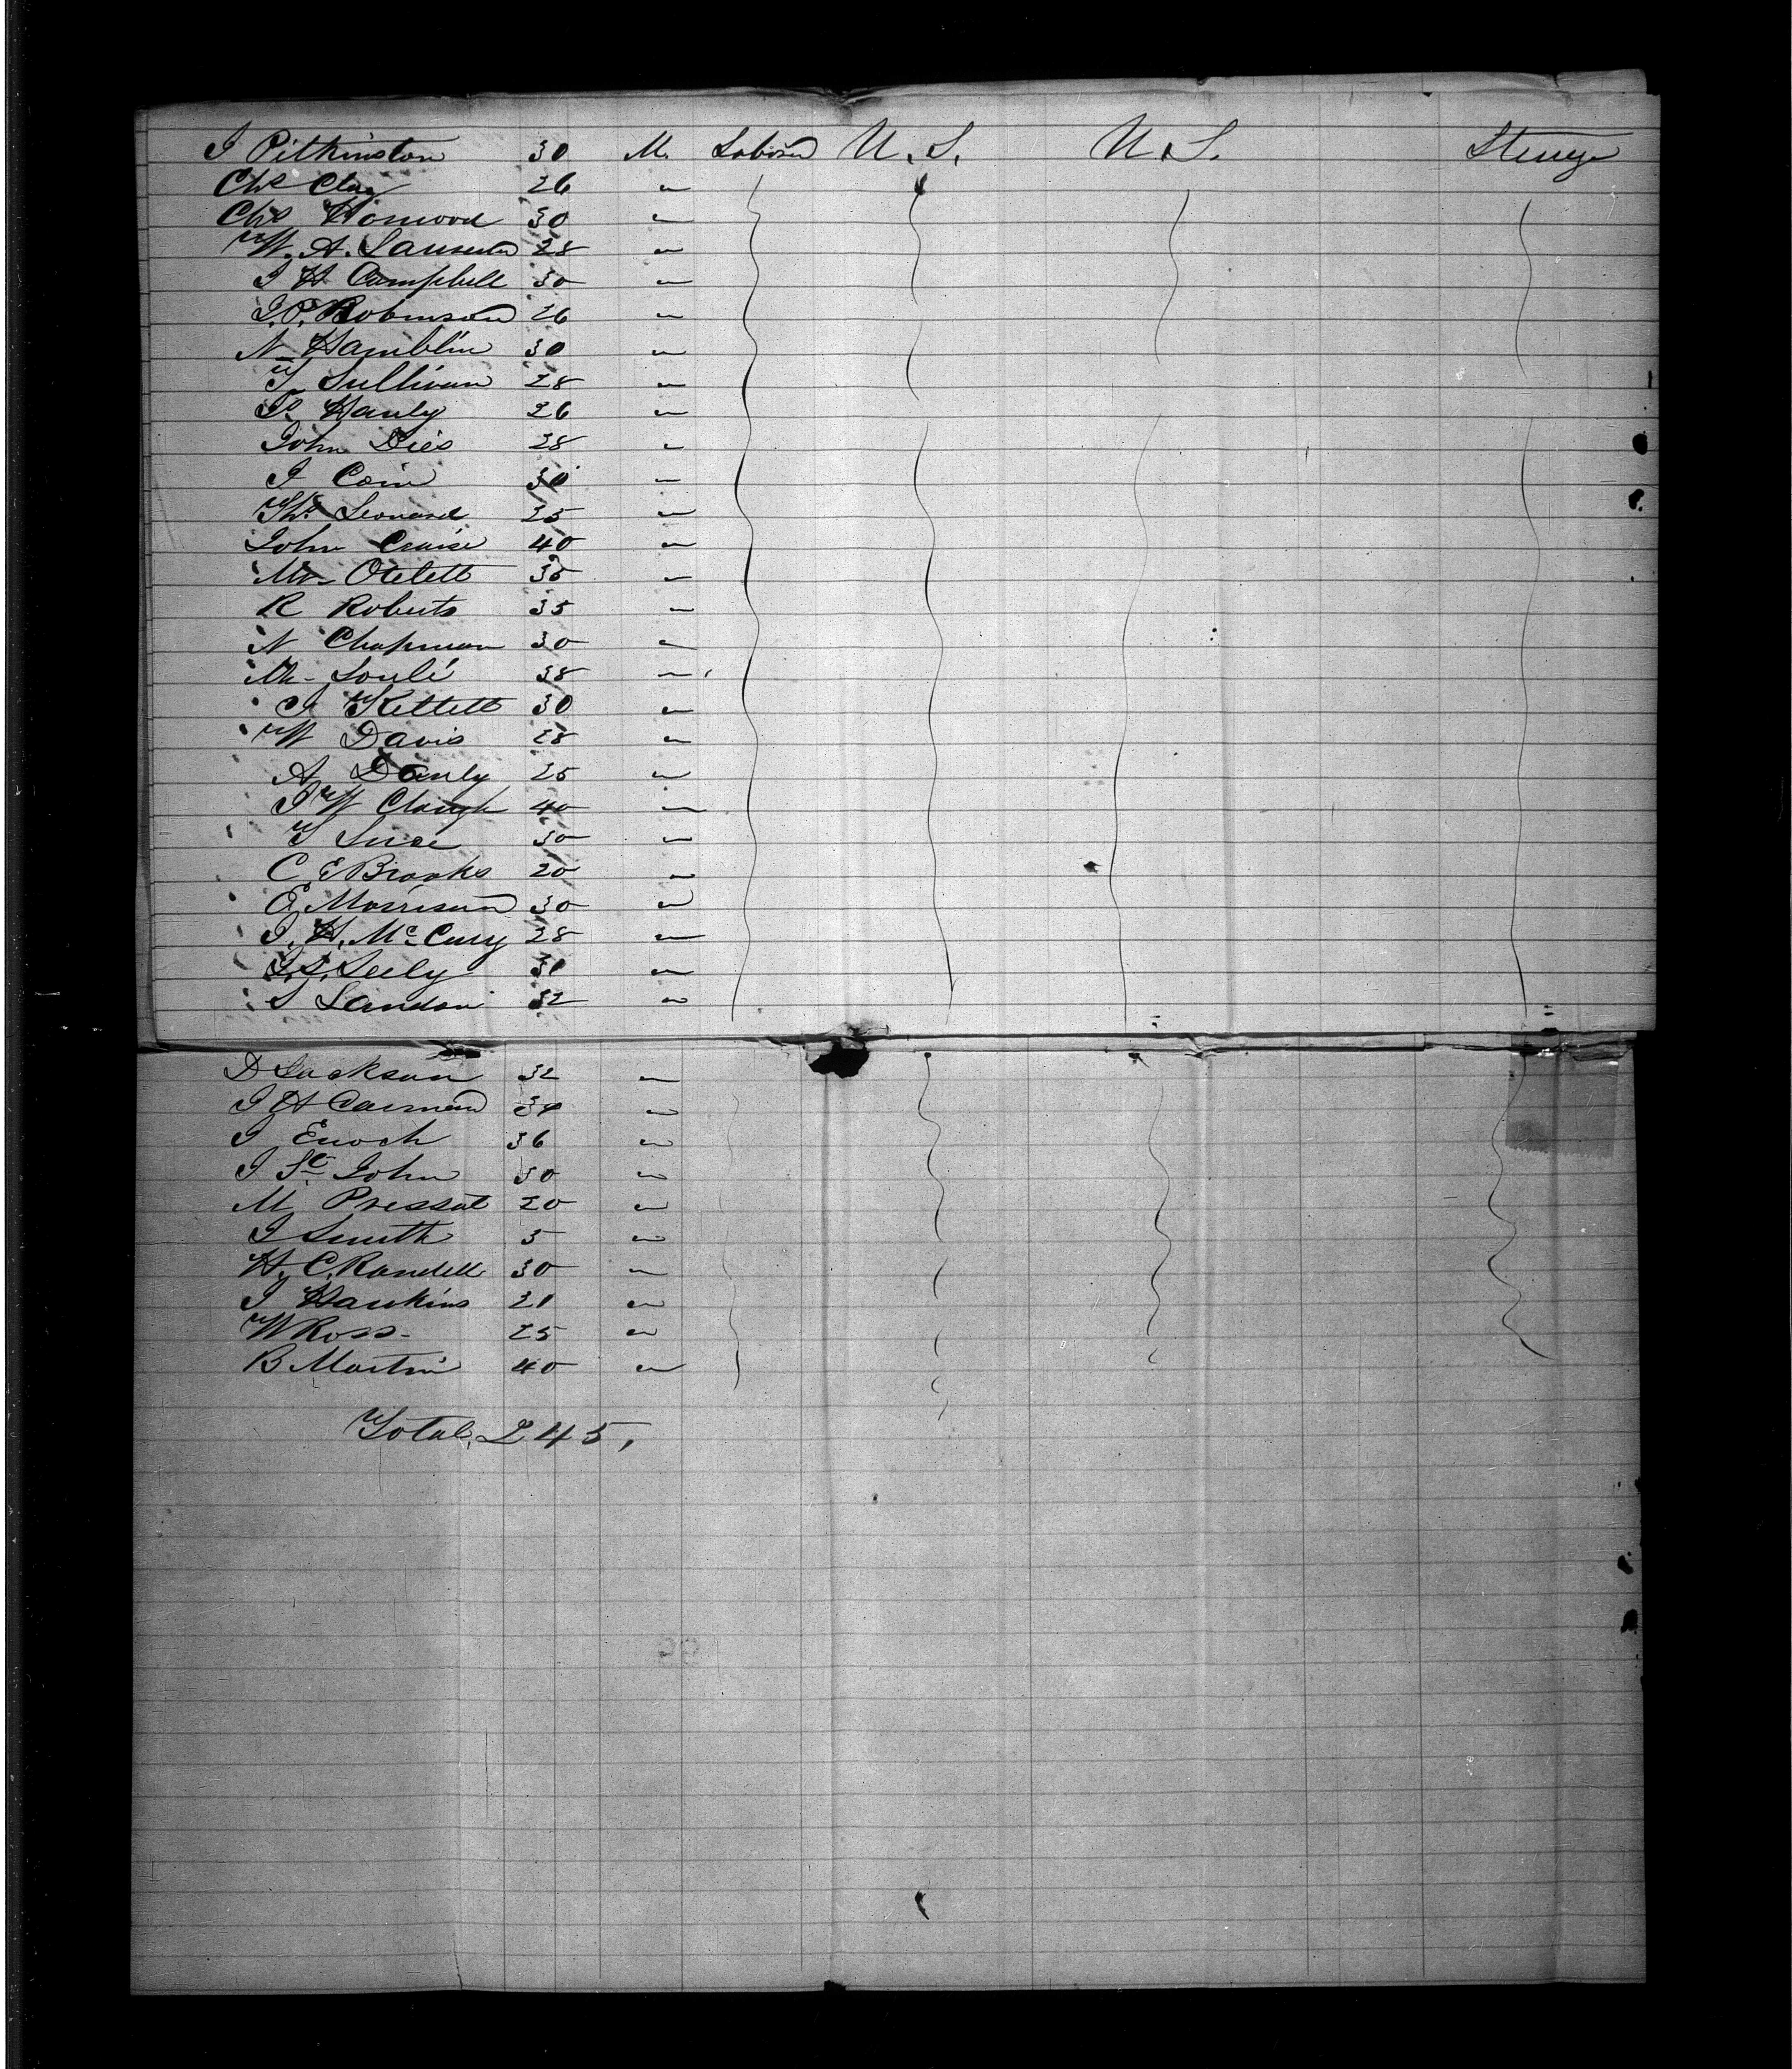 J Pilkinston 30 M. Laborer U. S. U. S. Steerge
Chs Clay 26 "
Chs Horwood 30 "
W. A. 28 "
J H Campbell 30 "
J. P. Robinson 26 "
N Hamblin 30 "
T Sullivan 28 "
P. Hanly 26 "
John Dies 28 "
J Coin 30 "
Ths Leonard 25 "
John Cruise 40 "
Mr Otelett 35 "
R Roberts 35 "
N Chapman 30 "
M. Soulé 38 "
J Kettett 30 "
W Davis 28 "
A Danly 25 "
J W Clough 40 "
T Luce 30 "
C E Brooks 20 "
E. Morrison 30 "
J. H. McCury 28 "
J. S. Seely 31 "
S Landon 32 "
D Jackson 32 "
J H Carman 34 "
J Enoch 36 "
J St John 30 "
M Pressat 20 "
J Smith 5 "
H. C. Randell 30 "
J Hawkins 21 "
W Ross 25 "
B Martin 40 "
Total. 245,